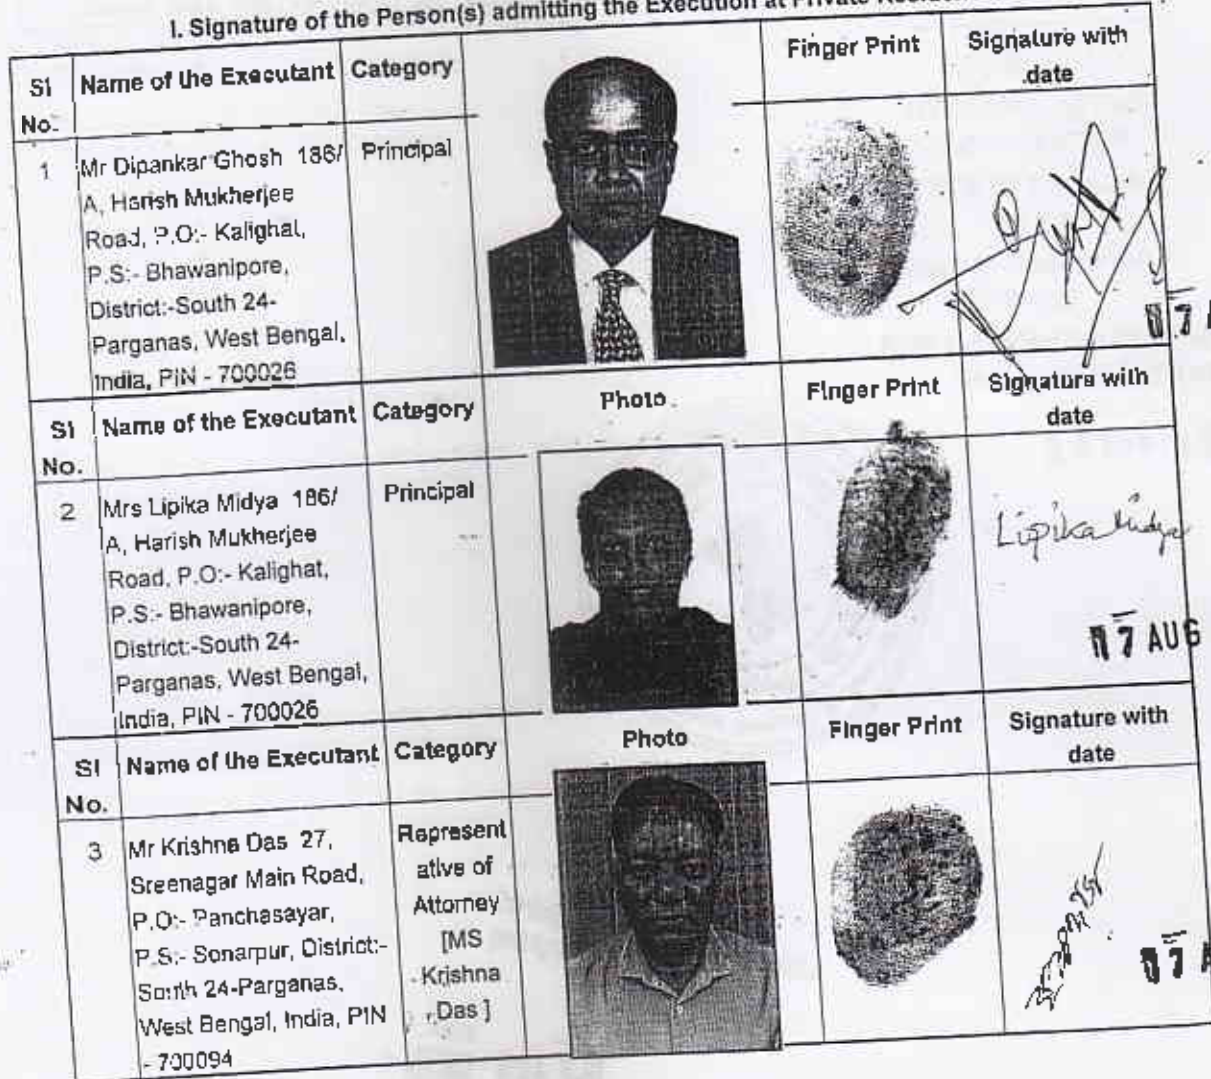 I. Signature of the Person(s) admitting the Execution at Private
Sl No. Name of the Executant Category Finger Print Signature with date
1 Mr Dipankar Ghosh 186/ Principal
A, Harish Mukherjee
Road, P.O:- Kalighat,
P.S:- Bhawanipore,
District:-South 24-
Parganas, West Bengal,
India, PIN - 700026
Sl No. Name of the Executant Category Photo Finger Print Signature with date
2 Mrs Lipika Midya 186/ Principal
A, Harish Mukherjee
Road, P.O:- Kalighat,
P.S:- Bhawanipore,
District:-South 24-
Parganas, West Bengal,
India, PIN - 700026
Lipika Midya
17 AUG
Sl No. Name of the Executant Category Photo Finger Print Signature with date
3 Mr Krishna Das 27,
Sreenagar Main Road,
P.O:- Panchasayar,
P.S:- Sonarpur, District:-
South 24-Parganas,
West Bengal, India, PIN
- 700094
Represent
ative of
Attorney
[MS
Krishna
Das ]